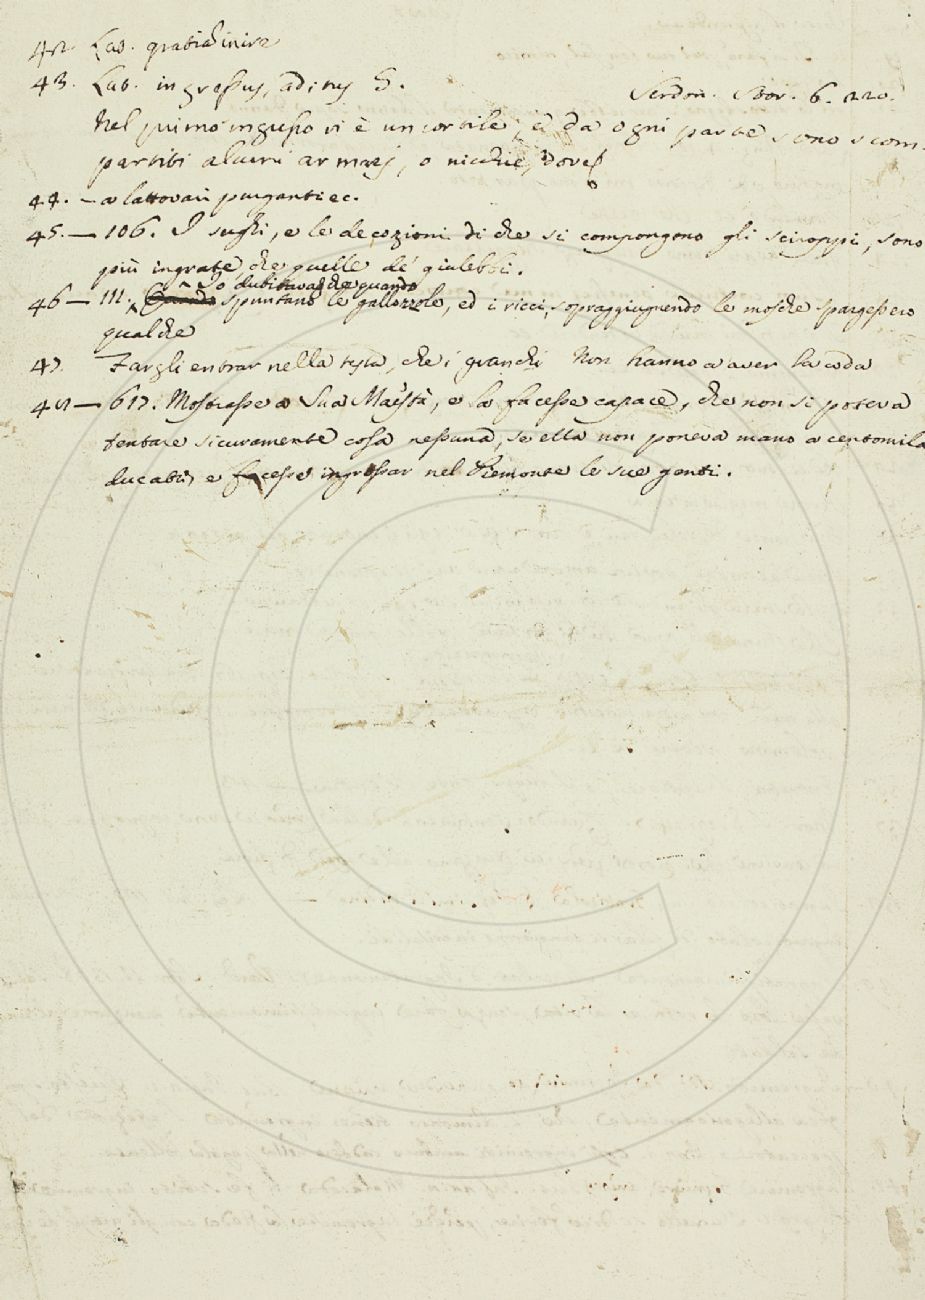 42. Lat. gratificnire
43. Lat. ingressus, aditus S. Serdon. Stor. 6. 220.
Nel primo ingresso vi è un cortile, e da ogni parte sono scom-
partiti alcuni armarj, o nicchie, dove
44. – a lattovari purganti ec.
45. – 106. I sughi, e le decozioni di che si compongono gli sciroppi, sono
più ingrate che quelle de' giulebbi.
Io dubitava che quando
46 – 111. spuntano le gallozzole, ed i ricci, sopraggiugnendo le mosche spargessero
qualche
47. Fargli entrar nella testa, che i granchi non hanno a aver la coda
48 – 617. Mostrasse a Sua Maestà, e la facesse capace, che non si poteva
tentare sicuramente cosa nessuna, se ella non poneva mano a centomila
ducati, e facesse ingrossar nel Piemonte le sue genti.